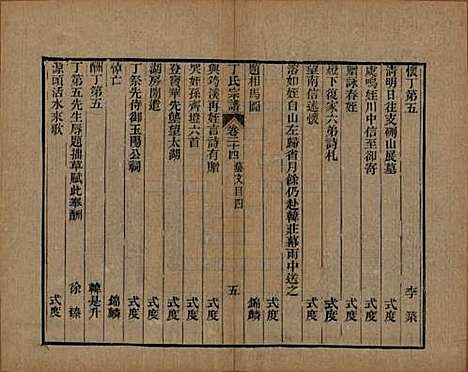 懷丁第五　李榮
清明日往支硎山展墓　式度
鹿鳴姪川中信至卻寄　式度
賸詠春姪　式度
燈下復家六弟詩札　式度
望南信述懷　式度
溶如姪自山左歸省月餘仍赴韓莊幕雨中送之　式度
題相馬圖　錦麟
丁氏宗譜　卷二十四　藝文目四　五
與筠溪再姪言詩有贈　式度
哭姪孫齊壇六首　式度
登寶華先塋望太湖　式度
湖房開道　式度
丁祭先侍御玉陽公祠　式度
悼亡　錦麟
酬丁第五　韓是升
丁第五先生辱題拙草賦此奉酬　徐嶸
源頭活水來歌　式度